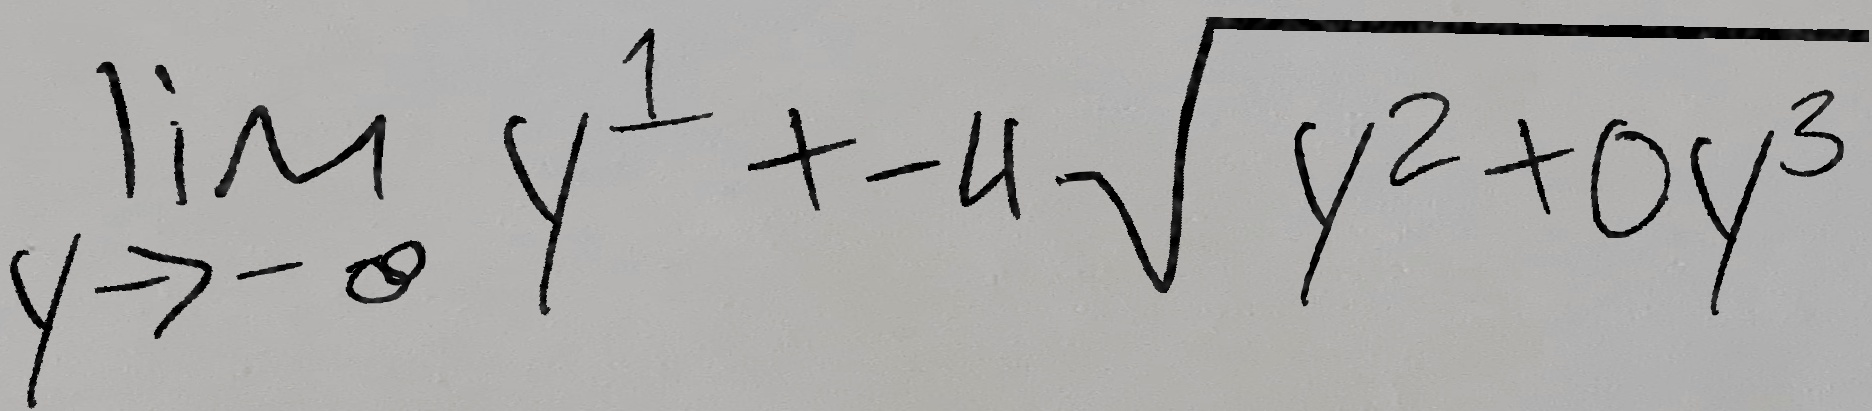 lim y¹ + -4√(y² + 0y³)
y → -∞